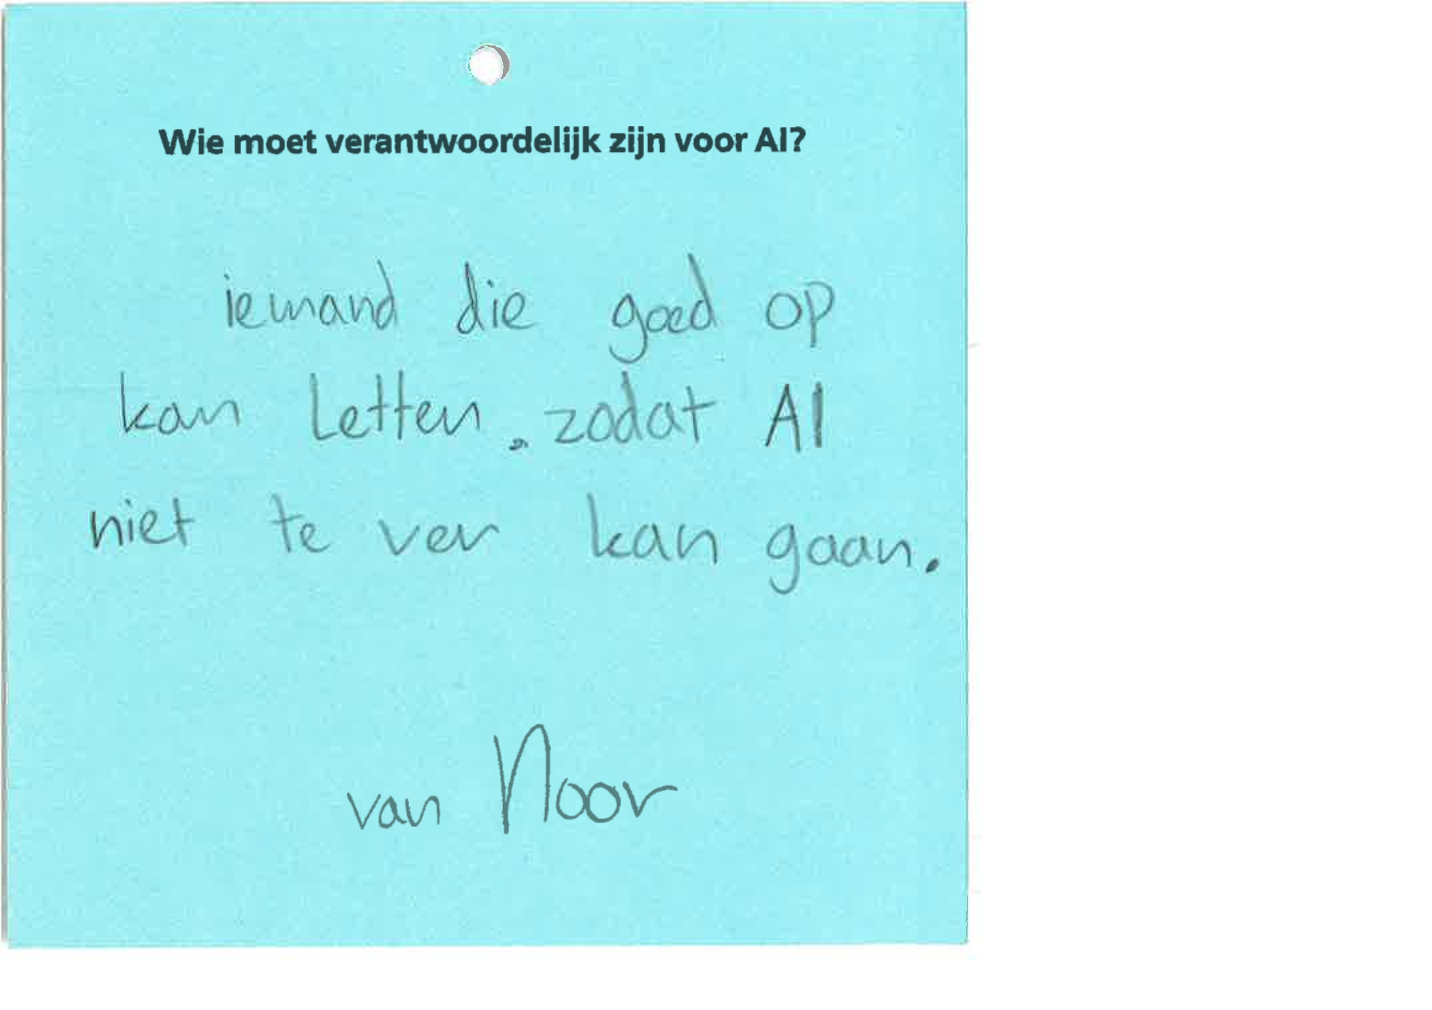 Wie moet verantwoordelijk zijn voor AI?
iemand die goed op
kan Letten. zodat AI
niet te ver kan gaan.
van Noor